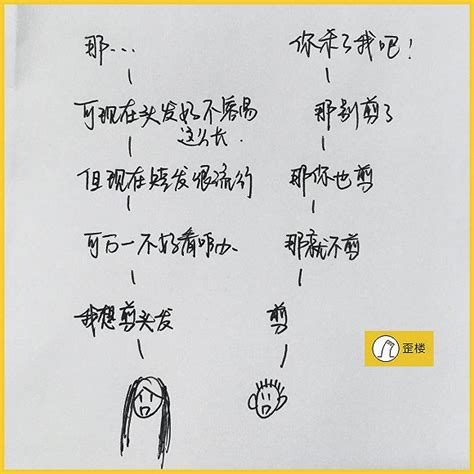 那…
你杀了我吧！
可现在头发好不容易
这么长
那别剪了
但现在短发很流行
那你也剪
可万一不好看咋办
那就不剪
我想剪头发
剪
歪楼